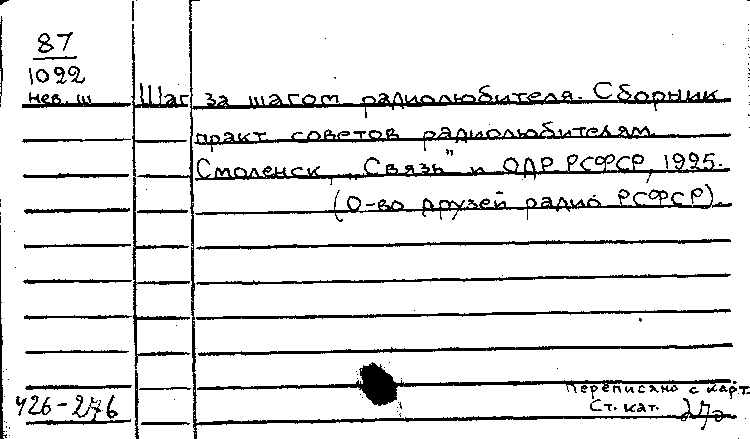 87
1022
нев. ш
Шаг за шагом радиолюбителя. Сборник
практ советов радиолюбителям
Смоленск, „Связь" и ОДР РСФСР, 1925.
(О-во друзей радио РСФСР).
Переписано с карт.
426-276 Ст. кат.